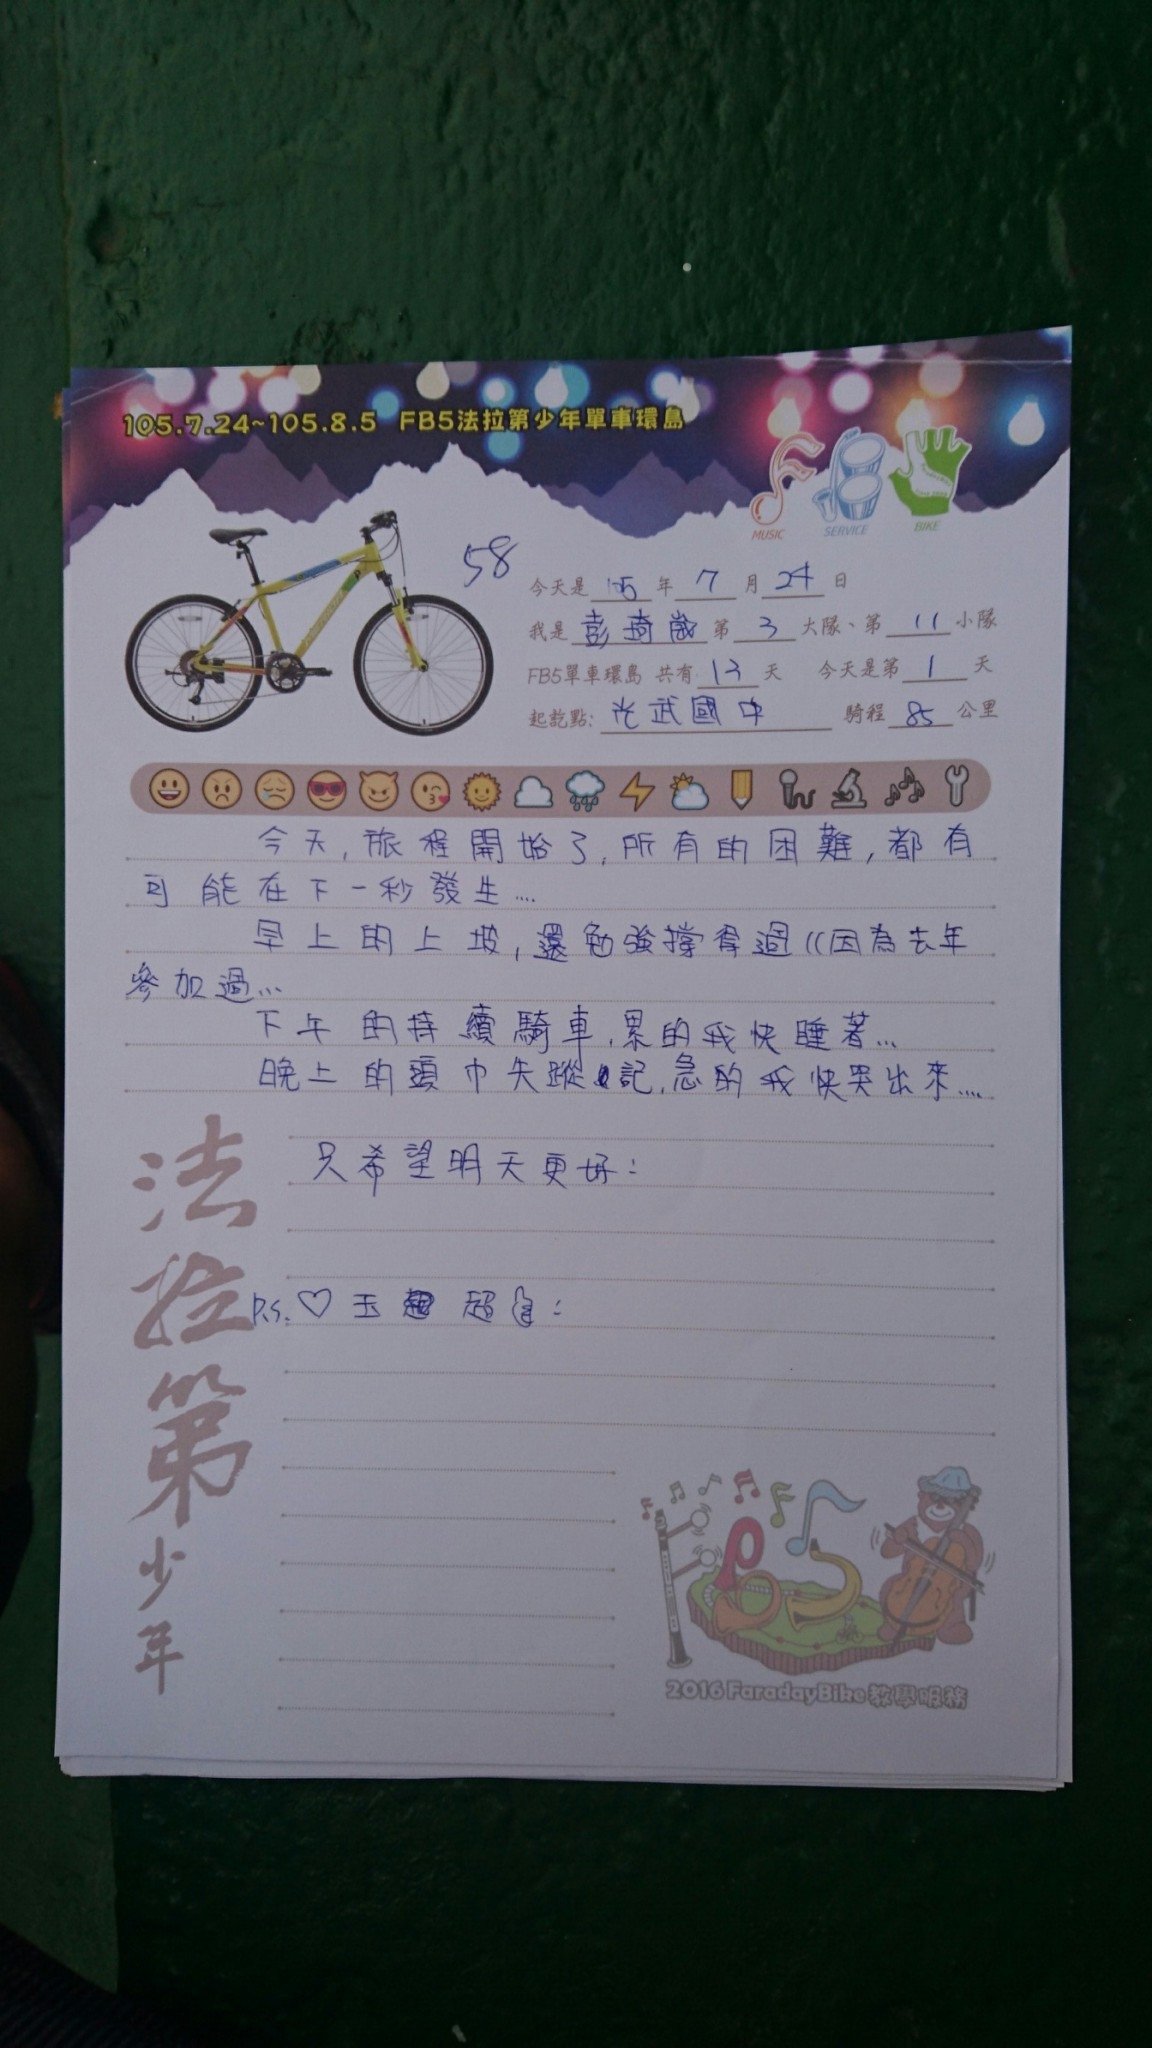 105.7.24~105.8.5 FB5法拉第少年單車環島
MUSIC SERVICE BIKE
58
今天是105年7月24日
我是彭琦崴 第3大隊、第11小隊
FB5單車環島 共有13天 今天是第1天
起訖點:光武國中 騎程85公里
今天,旅程開始了,所有的困難,都有
可能在下一秒發生....
早上的上坡,還勉強撐得過((因為去年
參加過...
下午的持續騎車,累的我快睡著...
晚上的頭巾失蹤記,急的我快哭出來....
只希望明天更好:
P.S.♡玉 超👍:
法拉第少年
2016 FaradayBike 教學服務